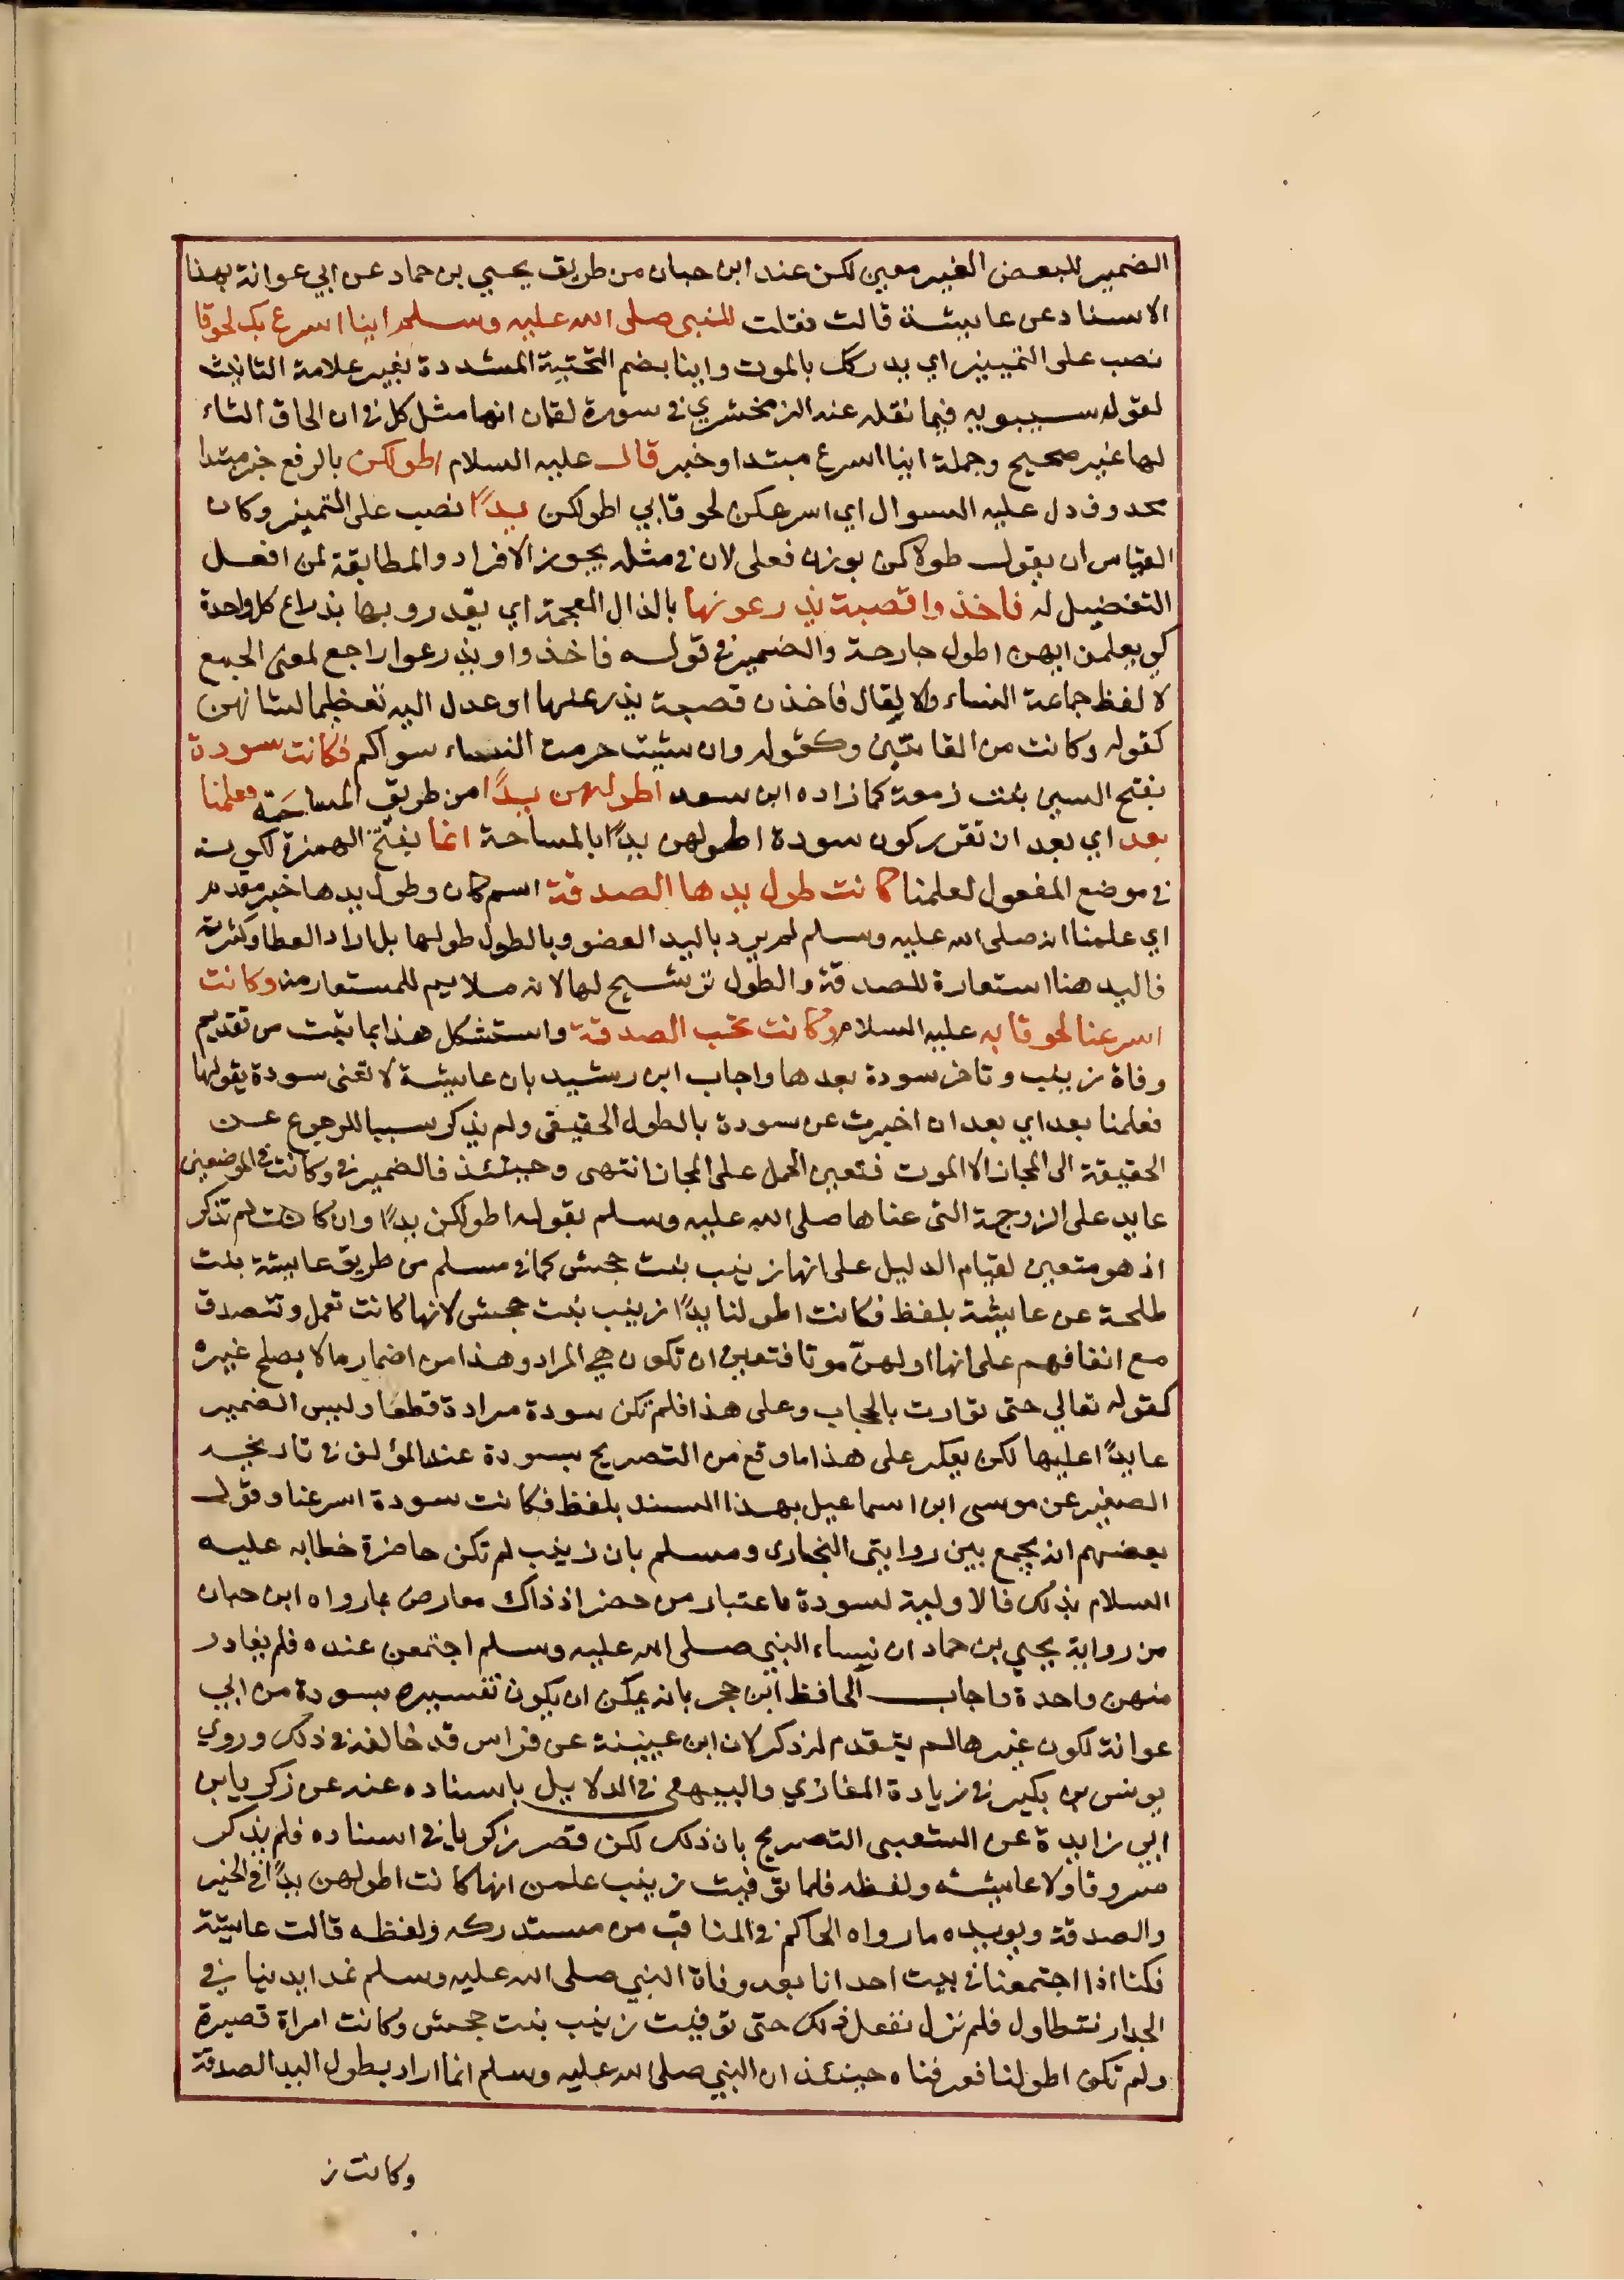 الضمير للبعض الغير معين لكن عند ابن حبان من طريق يحيي بن حماد عن ابي عوانة بهذا
الاسناد عن عايشة قالت فقلت للنبي صلى الله عليه وسلم اينا اسرع بك لحوقا
نصب على التمييز اي يدركك بالموت واينا بضم التحتية المشددة بغير علامة التانيث
لقوله سيبويه فيما نقله عنه الزمخشري في سورة لقمان انها مثل كل في ان الحاق التاء
لها غير صحيح وجملة اينا اسرع مبتدا وخبر قال عليه السلام اطولكن بالرفع خبر مبتدا
محدوف دل عليه السوال اي اسرعكن لحوقا بي اطولكن يدًا نصب على التمييز وكان
القياس ان يقول طولاكن بوزن فعلى لان في مثله يجوز الافراد والمطابقة لمن افعل
التفضيل له فاخذوا قصبة يذرعونها بالذال المعجمة اي يقدروبها بذراع كل واحدة
كي يعلمن ايهن اطول جارحة والضمير في قوله فاخذوا ويذرعوا راجع لمعنى الجمع
لا لفظ جماعة النساء ولا يقال فاخذن قصبة يذرعنها او عدل اليه تعظيما لشانهن
كقوله وكانت من القانتين وكقوله وان شيت حرمت النساء سواكم فكانت سودة
بفتح السين بنت زمعة كما زاده ابن سعد اطولهن يدًا من طريق المساحَة فعلمنا
بعد اي بعد ان تقرر كون سودة اطولهن يدًا بالمساحة انما بفتح الهمزة لكونه
في موضع المفعول لعلمنا كانت طول يدها الصدقة اسم كان وطول يدها خبر مقدم
اي علمنا انه صلى الله عليه وسلم لم يرد باليد العضو وبالطول طولها بل اراد العطا وكثرته
فاليد هنا استعارة للصدقة والطول ترشيح لها لانه ملايم للمستعار منه وكانت
اسرعنا لحوقا به عليه السلام وكانت تحب الصدقة واستشكل هذا بما ثبت من تقديم
وفاة زينب وتاخر سودة بعدها واجاب ابن رشيد بان عايشة لا تعنى سودة بقولها
فعلمنا بعد اي بعد ان اخبرت عن سودة بالطول الحقيقي ولم يذكر سببا للرجوع عن
الحقيقة الى المجاز الا الموت فتعين الحمل على المجاز انتهى وحينئذ فالضمير في وكانت في الموضعين
عايد على الزوجة التى عناها صلى الله عليه وسلم بقوله اطولكن يدًا وان كانت لم تذكر
اذ هو متعين لقيام الدليل على انها زينب بنت جحش كما في مسلم من طريق عايشة بنت
طلحة عن عايشة بلفظ فكانت اطولنا يدًا زينب بنت جحش لانها كانت تعمل وتتصدق
مع اتفاقهم على انها اولهنّ موتا فتعين ان تكون هي المراد وهذا من اضمار ما لا يصلح غيره
كقوله تعالي حتى توارت بالحجاب وعلى هذا فلم تكن سودة مرادة قطعًا وليس الضمير
عايدًا عليها لكن يعكر على هذا ما وقع من التصريح بسودة عند المؤلف في تاريخه
الصغير عن موسى ابن اسماعيل بهذا السند بلفظ فكانت سودة اسرعنا وقول
بعضهم انه يجمع بين روايتى البخارى ومسلم بان زينب لم تكن حاضرة خطابه عليه
السلام بذلك فالاولية لسودة باعتبار من حضر اذ ذاك معارض بما رواه ابن حبان
من رواية يحيي بن حماد ان نساء النبي صلى الله عليه وسلم اجتمعن عنده فلم يغادر
منهن واحدة واجاب الحافظ ابن حجر بانه يمكن ان يكون تفسيره بسودة من ابي
عوانة لكون غيرها لم يتقدم له ذكر لان ابن عيينة عن فراس قد خالفه في ذلك وروي
يونس بن بكير في زيادة المغازي والبيهقي في الدلايل باسناده عنه عن زكريا بن
ابي زايدة عن الشعبى التصريح بان ذلك لكن قصر زكريا في اسناده فلم يذكر
مسروقا ولا عايشه ولفظه فلما توفيت زينب علمن انها كانت اطولهن يدًا في الخير
والصدقة ويويده ما رواه الحاكم في المناقب من مستدركه ولفظه قالت عايشة
فكنا اذا اجتمعنا في بيت احدانا بعد وفاة النبي صلى الله عليه وسلم نمد ايدينا في
الجدار نتطاول فلم نزل نفعل ذلك حتى توفيت زينب بنت جحش وكانت امراة قصيرة
ولم تكن اطولنا فعرفناه حينئذ ان النبي صلى الله عليه وسلم انما اراد بطول اليد الصدقة
وكانت ز